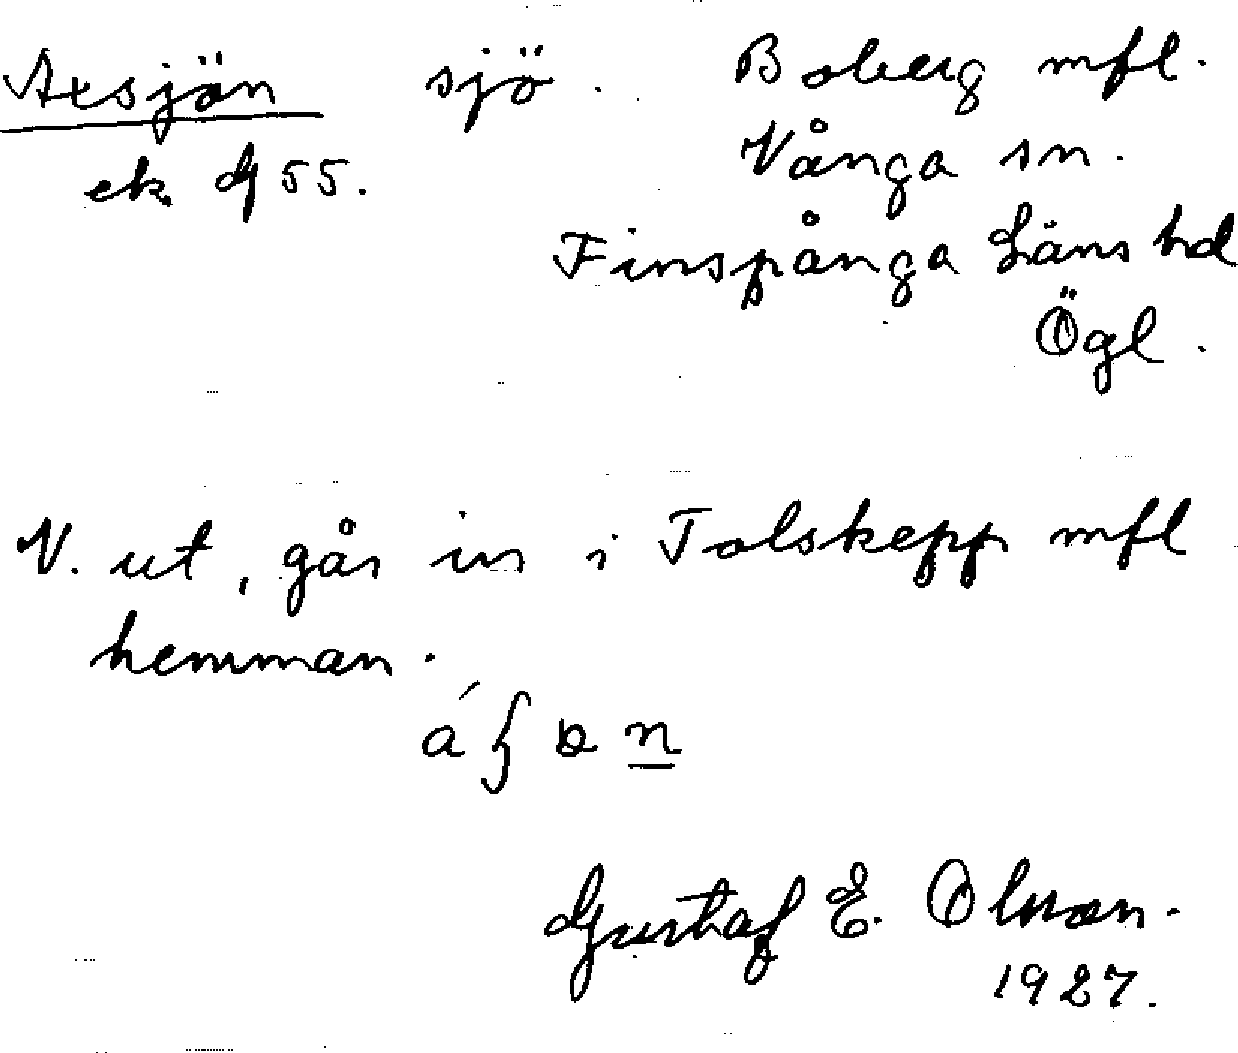 Axsjön sjö. Boberg mfl.
ek. 55. Vånga sn.
Finspånga Läns hd
Ögl.
V. ut, går in i Tolskepp mfl
hemman.
Gustaf E. Olsson.
1927.